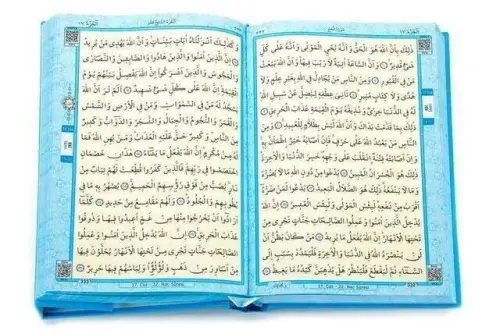 ذٰلِكَ بِاَنَّ اللّٰهَ هُوَ الْحَقُّ وَاَنَّهُ يُحْيِ الْمَوْتٰى وَاَنَّهُ عَلٰى كُلِّ
شَيْءٍ قَدِيرٌ وَاَنَّ السَّاعَةَ اٰتِيَةٌ لَا رَيْبَ فِيهَا وَاَنَّ اللّٰهَ يَبْعَثُ
مَنْ فِي الْقُبُورِ وَمِنَ النَّاسِ مَنْ يُجَادِلُ فِي اللّٰهِ بِغَيْرِ عِلْمٍ وَلَا
هُدًى وَلَا كِتَابٍ مُنِيرٍ ثَانِيَ عِطْفِهِ لِيُضِلَّ عَنْ سَبِيلِ اللّٰهِ
لَهُ فِي الدُّنْيَا خِزْيٌ وَنُذِيقُهُ يَوْمَ الْقِيٰمَةِ عَذَابَ الْحَرِيقِ
ذٰلِكَ بِمَا قَدَّمَتْ يَدَاكَ وَاَنَّ اللّٰهَ لَيْسَ بِظَلَّامٍ لِلْعَبِيدِ وَمِنَ
النَّاسِ مَنْ يَعْبُدُ اللّٰهَ عَلٰى حَرْفٍ فَاِنْ اَصَابَهُ خَيْرٌ اطْمَاَنَّ بِهِ
وَاِنْ اَصَابَتْهُ فِتْنَةٌ انْقَلَبَ عَلٰى وَجْهِهِ خَسِرَ الدُّنْيَا وَالْاٰخِرَةَ
ذٰلِكَ هُوَ الْخُسْرَانُ الْمُبِينُ يَدْعُوا مِنْ دُونِ اللّٰهِ مَا لَا يَضُرُّهُ
وَمَا لَا يَنْفَعُهُ ذٰلِكَ هُوَ الضَّلَالُ الْبَعِيدُ يَدْعُوا لَمَنْ ضَرُّهُ
اَقْرَبُ مِنْ نَفْعِهِ لَبِئْسَ الْمَوْلٰى وَلَبِئْسَ الْعَشِيرُ اِنَّ اللّٰهَ
يُدْخِلُ الَّذِينَ اٰمَنُوا وَعَمِلُوا الصَّالِحَاتِ جَنَّاتٍ تَجْرِي مِنْ
تَحْتِهَا الْاَنْهَارُ اِنَّ اللّٰهَ يَفْعَلُ مَا يُرِيدُ مَنْ كَانَ يَظُنُّ اَنْ
لَنْ يَنْصُرَهُ اللّٰهُ فِي الدُّنْيَا وَالْاٰخِرَةِ فَلْيَمْدُدْ بِسَبَبٍ اِلَى
السَّمَاءِ ثُمَّ لْيَقْطَعْ فَلْيَنْظُرْ هَلْ يُذْهِبَنَّ كَيْدُهُ مَا يَغِيظُ
وَكَذٰلِكَ اَنْزَلْنَاهُ اٰيَاتٍ بَيِّنَاتٍ وَاَنَّ اللّٰهَ يَهْدِي مَنْ يُرِيدُ
اِنَّ الَّذِينَ اٰمَنُوا وَالَّذِينَ هَادُوا وَالصَّابِئِينَ وَالنَّصَارٰى
وَالْمَجُوسَ وَالَّذِينَ اَشْرَكُوا اِنَّ اللّٰهَ يَفْصِلُ بَيْنَهُمْ يَوْمَ
الْقِيٰمَةِ اِنَّ اللّٰهَ عَلٰى كُلِّ شَيْءٍ شَهِيدٌ اَلَمْ تَرَ اَنَّ اللّٰهَ
يَسْجُدُ لَهُ مَنْ فِي السَّمٰوَاتِ وَمَنْ فِي الْاَرْضِ وَالشَّمْسُ
وَالْقَمَرُ وَالنُّجُومُ وَالْجِبَالُ وَالشَّجَرُ وَالدَّوَابُّ وَكَثِيرٌ
مِنَ النَّاسِ وَكَثِيرٌ حَقَّ عَلَيْهِ الْعَذَابُ وَمَنْ يُهِنِ اللّٰهُ فَمَا
لَهُ مِنْ مُكْرِمٍ اِنَّ اللّٰهَ يَفْعَلُ مَا يَشَاءُ هٰذَانِ خَصْمَانِ
اخْتَصَمُوا فِي رَبِّهِمْ فَالَّذِينَ كَفَرُوا قُطِّعَتْ لَهُمْ ثِيَابٌ مِنْ
نَارٍ يُصَبُّ مِنْ فَوْقِ رُؤُسِهِمُ الْحَمِيمُ يُصْهَرُ بِهِ مَا فِي
بُطُونِهِمْ وَالْجُلُودُ وَلَهُمْ مَقَامِعُ مِنْ حَدِيدٍ كُلَّمَا
اَرَادُوا اَنْ يَخْرُجُوا مِنْهَا مِنْ غَمٍّ اُعِيدُوا فِيهَا وَذُوقُوا
عَذَابَ الْحَرِيقِ اِنَّ اللّٰهَ يُدْخِلُ الَّذِينَ اٰمَنُوا وَعَمِلُوا
الصَّالِحَاتِ جَنَّاتٍ تَجْرِي مِنْ تَحْتِهَا الْاَنْهَارُ يُحَلَّوْنَ فِيهَا
مِنْ اَسَاوِرَ مِنْ ذَهَبٍ وَلُؤْلُؤًا وَلِبَاسُهُمْ فِيهَا حَرِيرٌ
17. Cüz - 22. Hac Sûresi